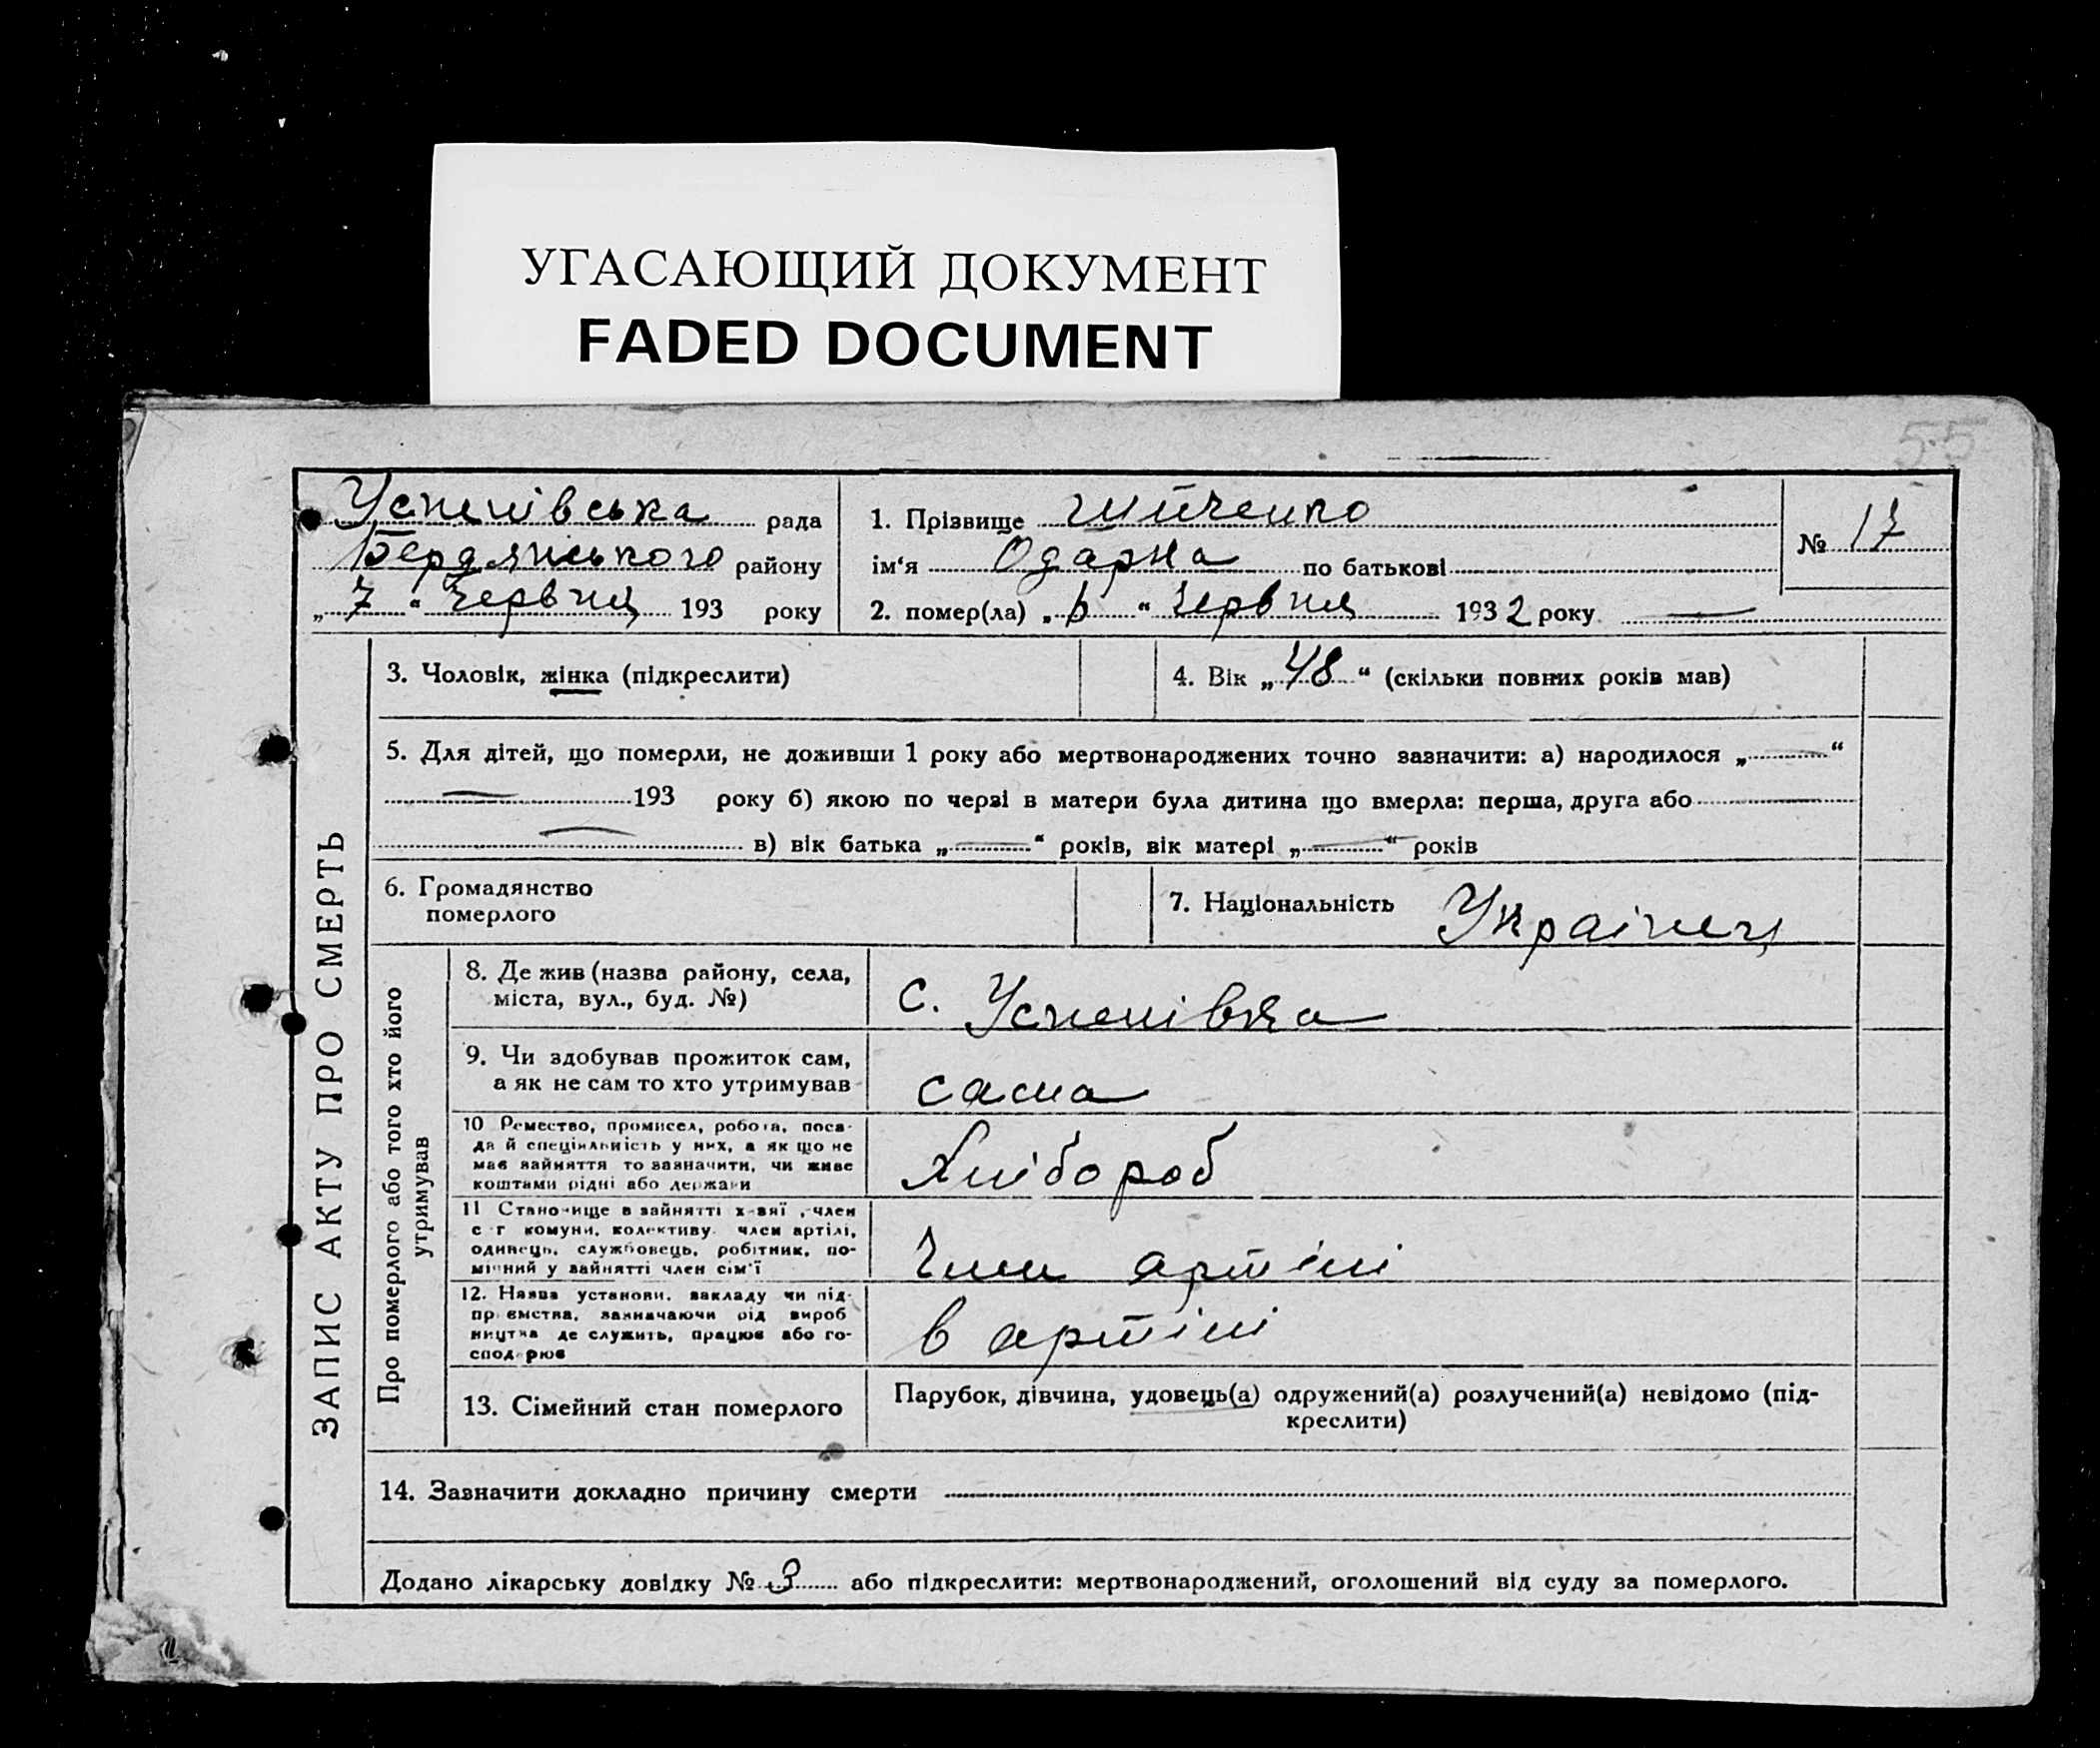 УГАСАЮЩИЙ ДОКУМЕНТ
FADED DOCUMENT
55
Успенівська рада
Бердянського району
„ 7 “ Червня 193 року
1. Прізвище
ім‘я Одарка по батькові
2. помер(ла) „ 6 “ Червня 1932 року
№ 17
ЗАПИС АКТУ ПРО СМЕРТЬ
3. Чоловік, жінка (підкреслити)
4. Вік „ 48 “ (скільки повних років мав)
5. Для дітей, що померли, не доживши 1 року або мертвонароджених точно зазначити: а) народилося „ — “
— 193 року б) якою по черзі в матери була дитина що вмерла: перша, друга або
— в) вік батька „ — “ років, вік матері „ — “ років
6. Громадянство
померлого
7. Національність Українец
Про померлого або того хто його
утримував
8. Де жив (назва району, села,
міста, вул., буд. №)
с. Успенівка
9. Чи здобував прожиток сам,
а як не сам то хто утримував
сама
10 Ремество, промисел, робота, поса-
да й спеціяльність у них, а як що не
має зайняття то зазначити, чи живе
коштами рідні або держави
Хлібороб
11 Становище в зайнятті х-зяї , член
с г комуни, колективу член артілі,
одинець, службовець, робітник, по-
мічний у зайнятті член сім‘ї
Член артілі
12. Назва установи, закладу чи під-
пр ємства, зазначаючи рід вироб
ництва де служить, працює або го-
спод рює
в артілі
13. Сімейний стан померлого
Парубок, дівчина, удовець(а) одружений(а) розлучений(а) невідомо (під-
креслити)
14. Зазначити докладно причину смерти
Додано лікарську довідку № 3 або підкреслити: мертвонароджений, оголошений від суду за померлого.